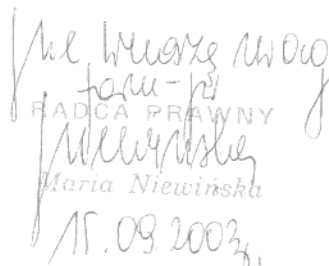 nie wnoszę uwag
RADCA PRAWNY
Maria Niewińska
15.09.2003r.